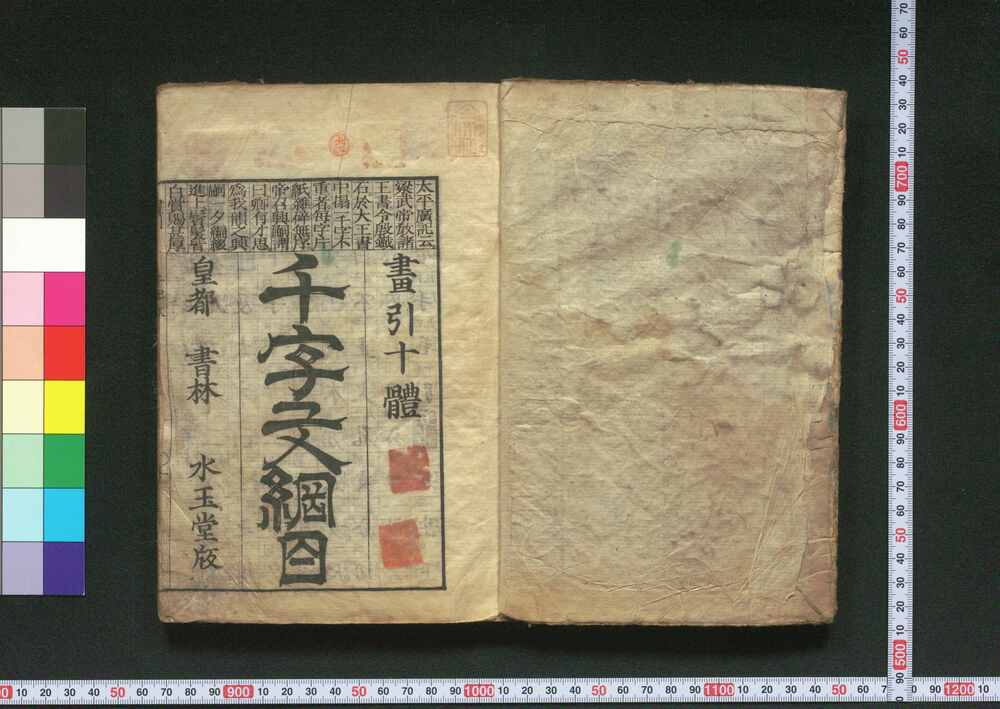 太平廣記云
梁武帝教諸
王書令殷鐵
石於大王書
中搨一千字不
重者毎字片
紙雜碎無序
帝召興嗣謂
曰卿有才思
爲我韻之興
嗣一夕編綴
進上鬢髮皆
白賞賜甚厚
畫引十體
千字文綱目
皇都 書林 水玉堂版